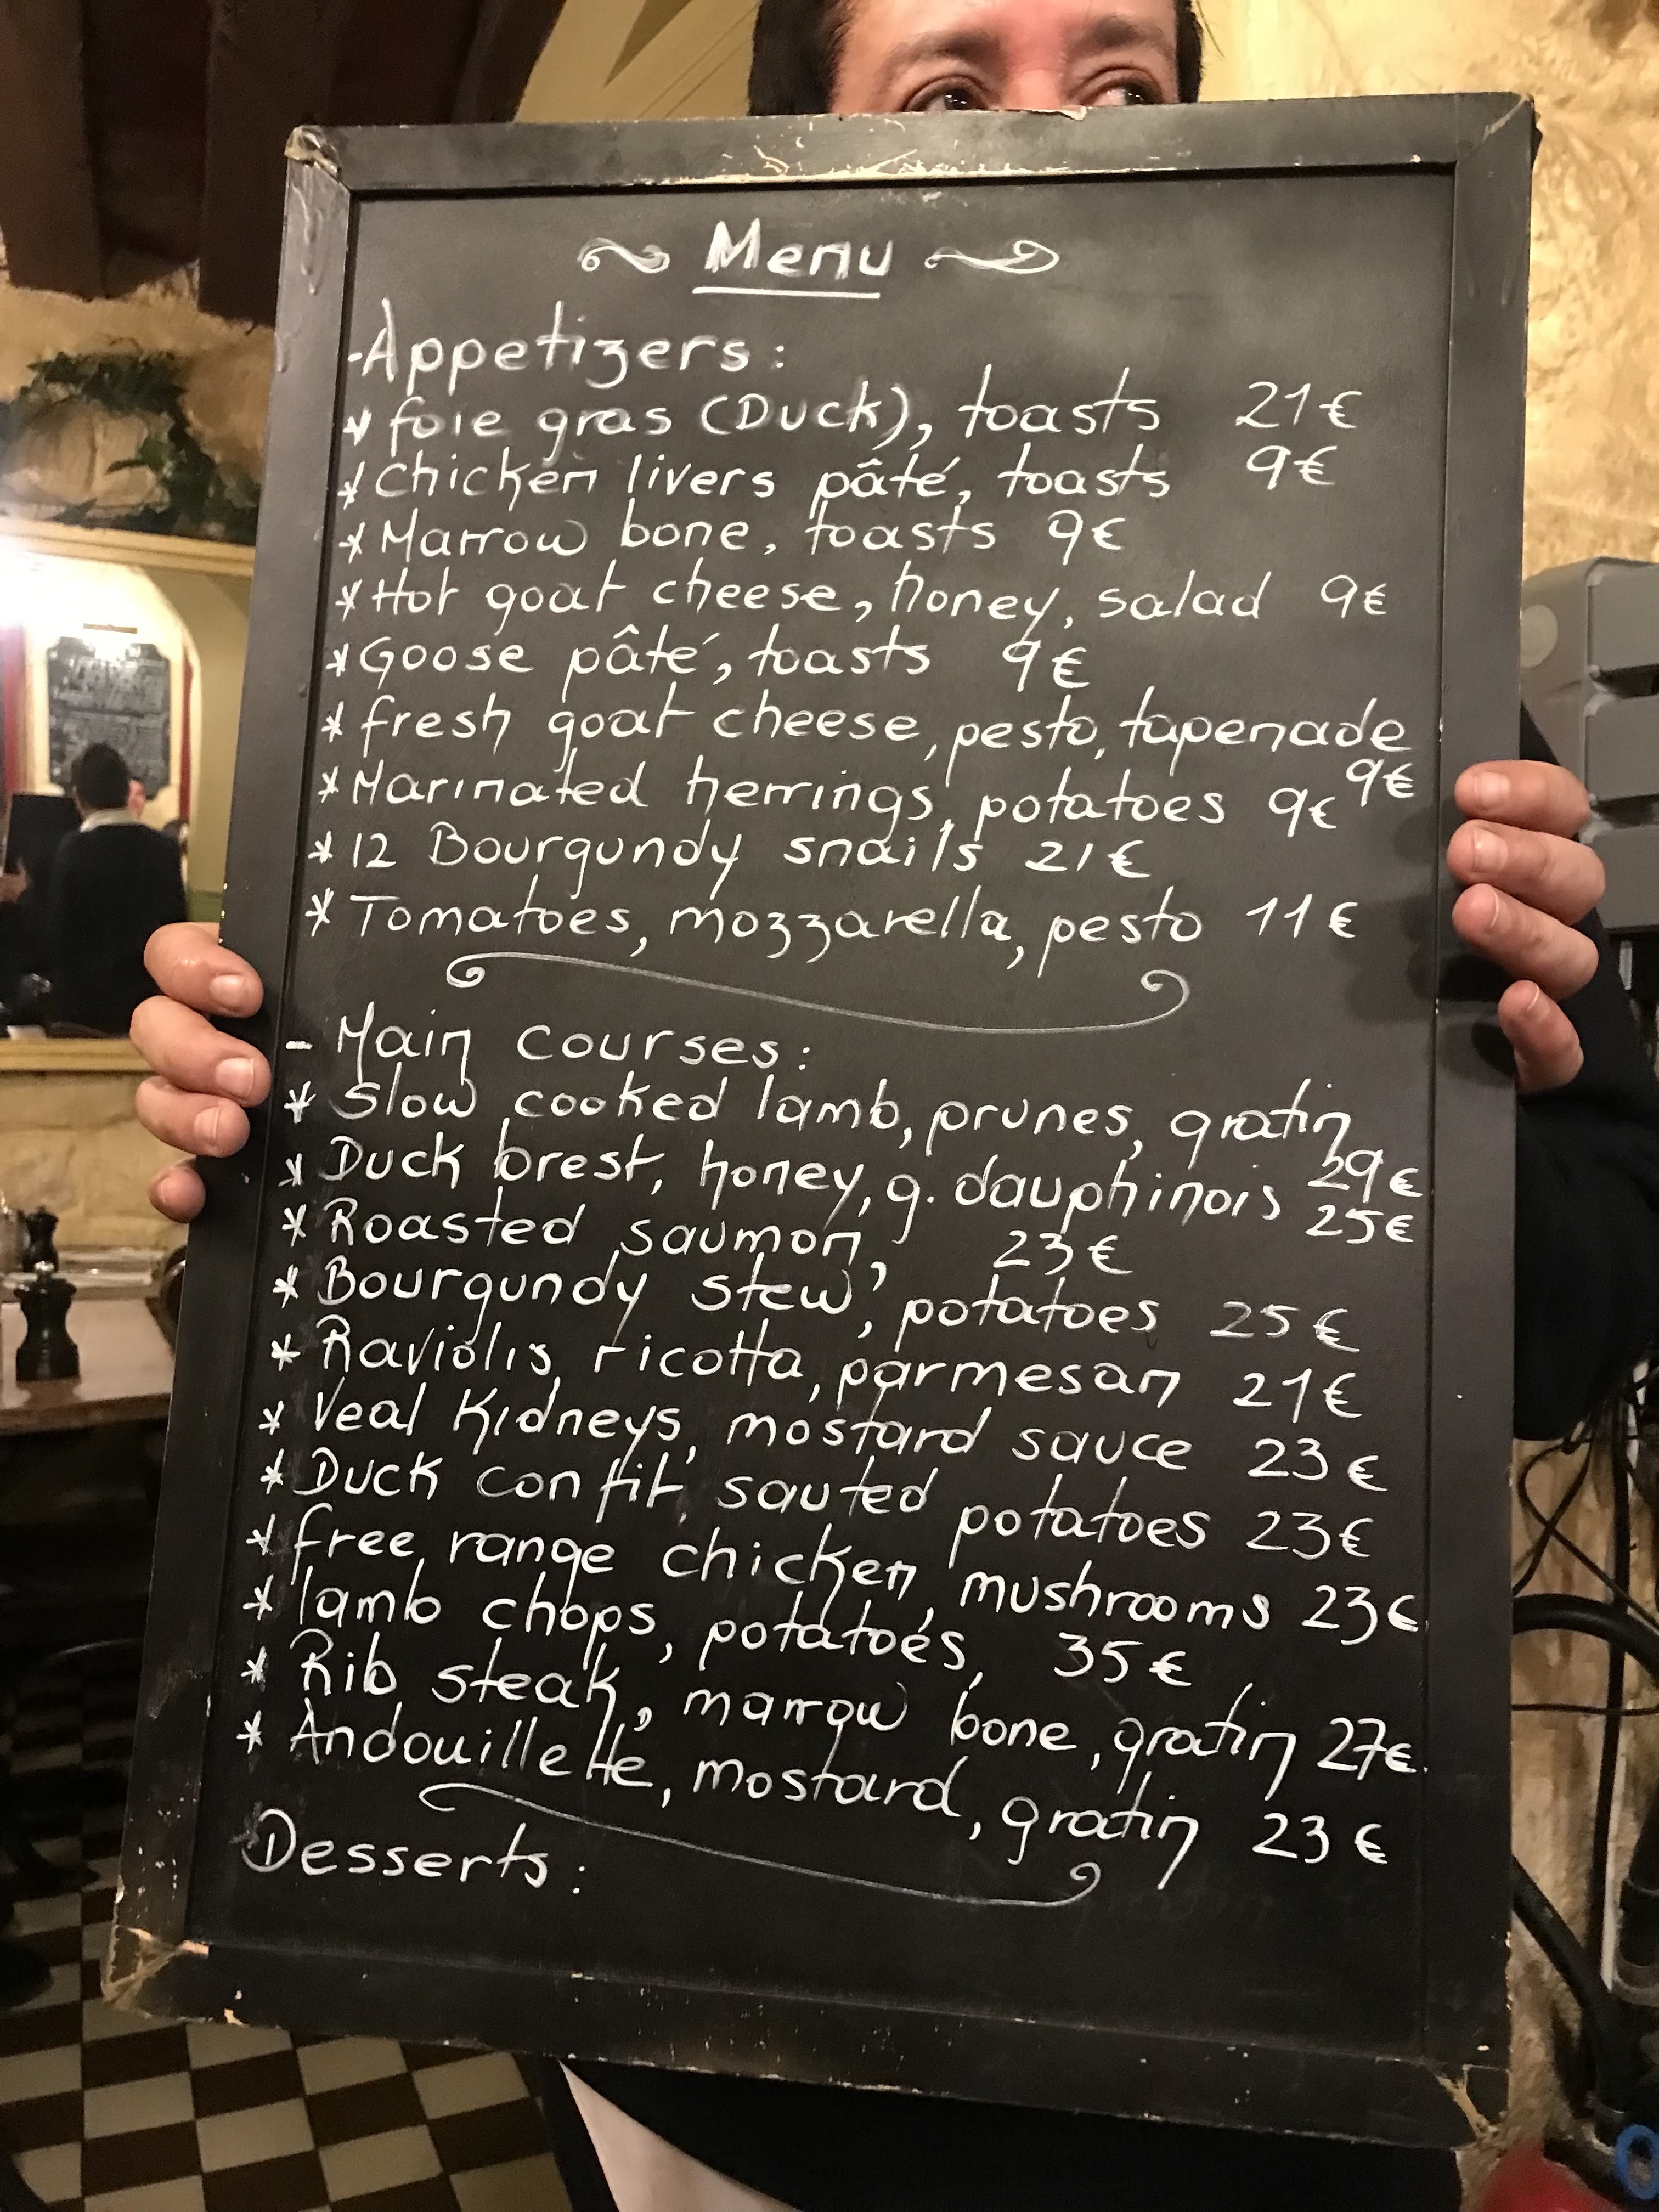 Menu
- Appetizers:
* foie gras (Duck), toasts 21€
* Chicken livers pâté, toasts 9€
* Marrow bone, toasts 9€
* Hot goat cheese, honey, salad 9€
* Goose pâté, toasts 9€
* fresh goat cheese, pesto, tapenade
9€
* Marinated herrings, potatoes 9€
* 12 Bourgundy snails 21€
* Tomatoes, mozzarella, pesto 11€
- Main courses:
* Slow cooked lamb, prunes, gratin
29€
* Duck brest, honey, g. dauphinois 25€
* Roasted saumon, 23€
* Bourgundy stew, potatoes 25€
* Raviolis, ricotta, parmesan 21€
* Veal Kidneys, mostard sauce 23€
* Duck confit, sauted potatoes 23€
* free range chicken, mushrooms 23€
* lamb chops, potatoes, 35€
* Rib steak, marrow bone, gratin 27€
* Andouillette, mostard, gratin 23€
Desserts: